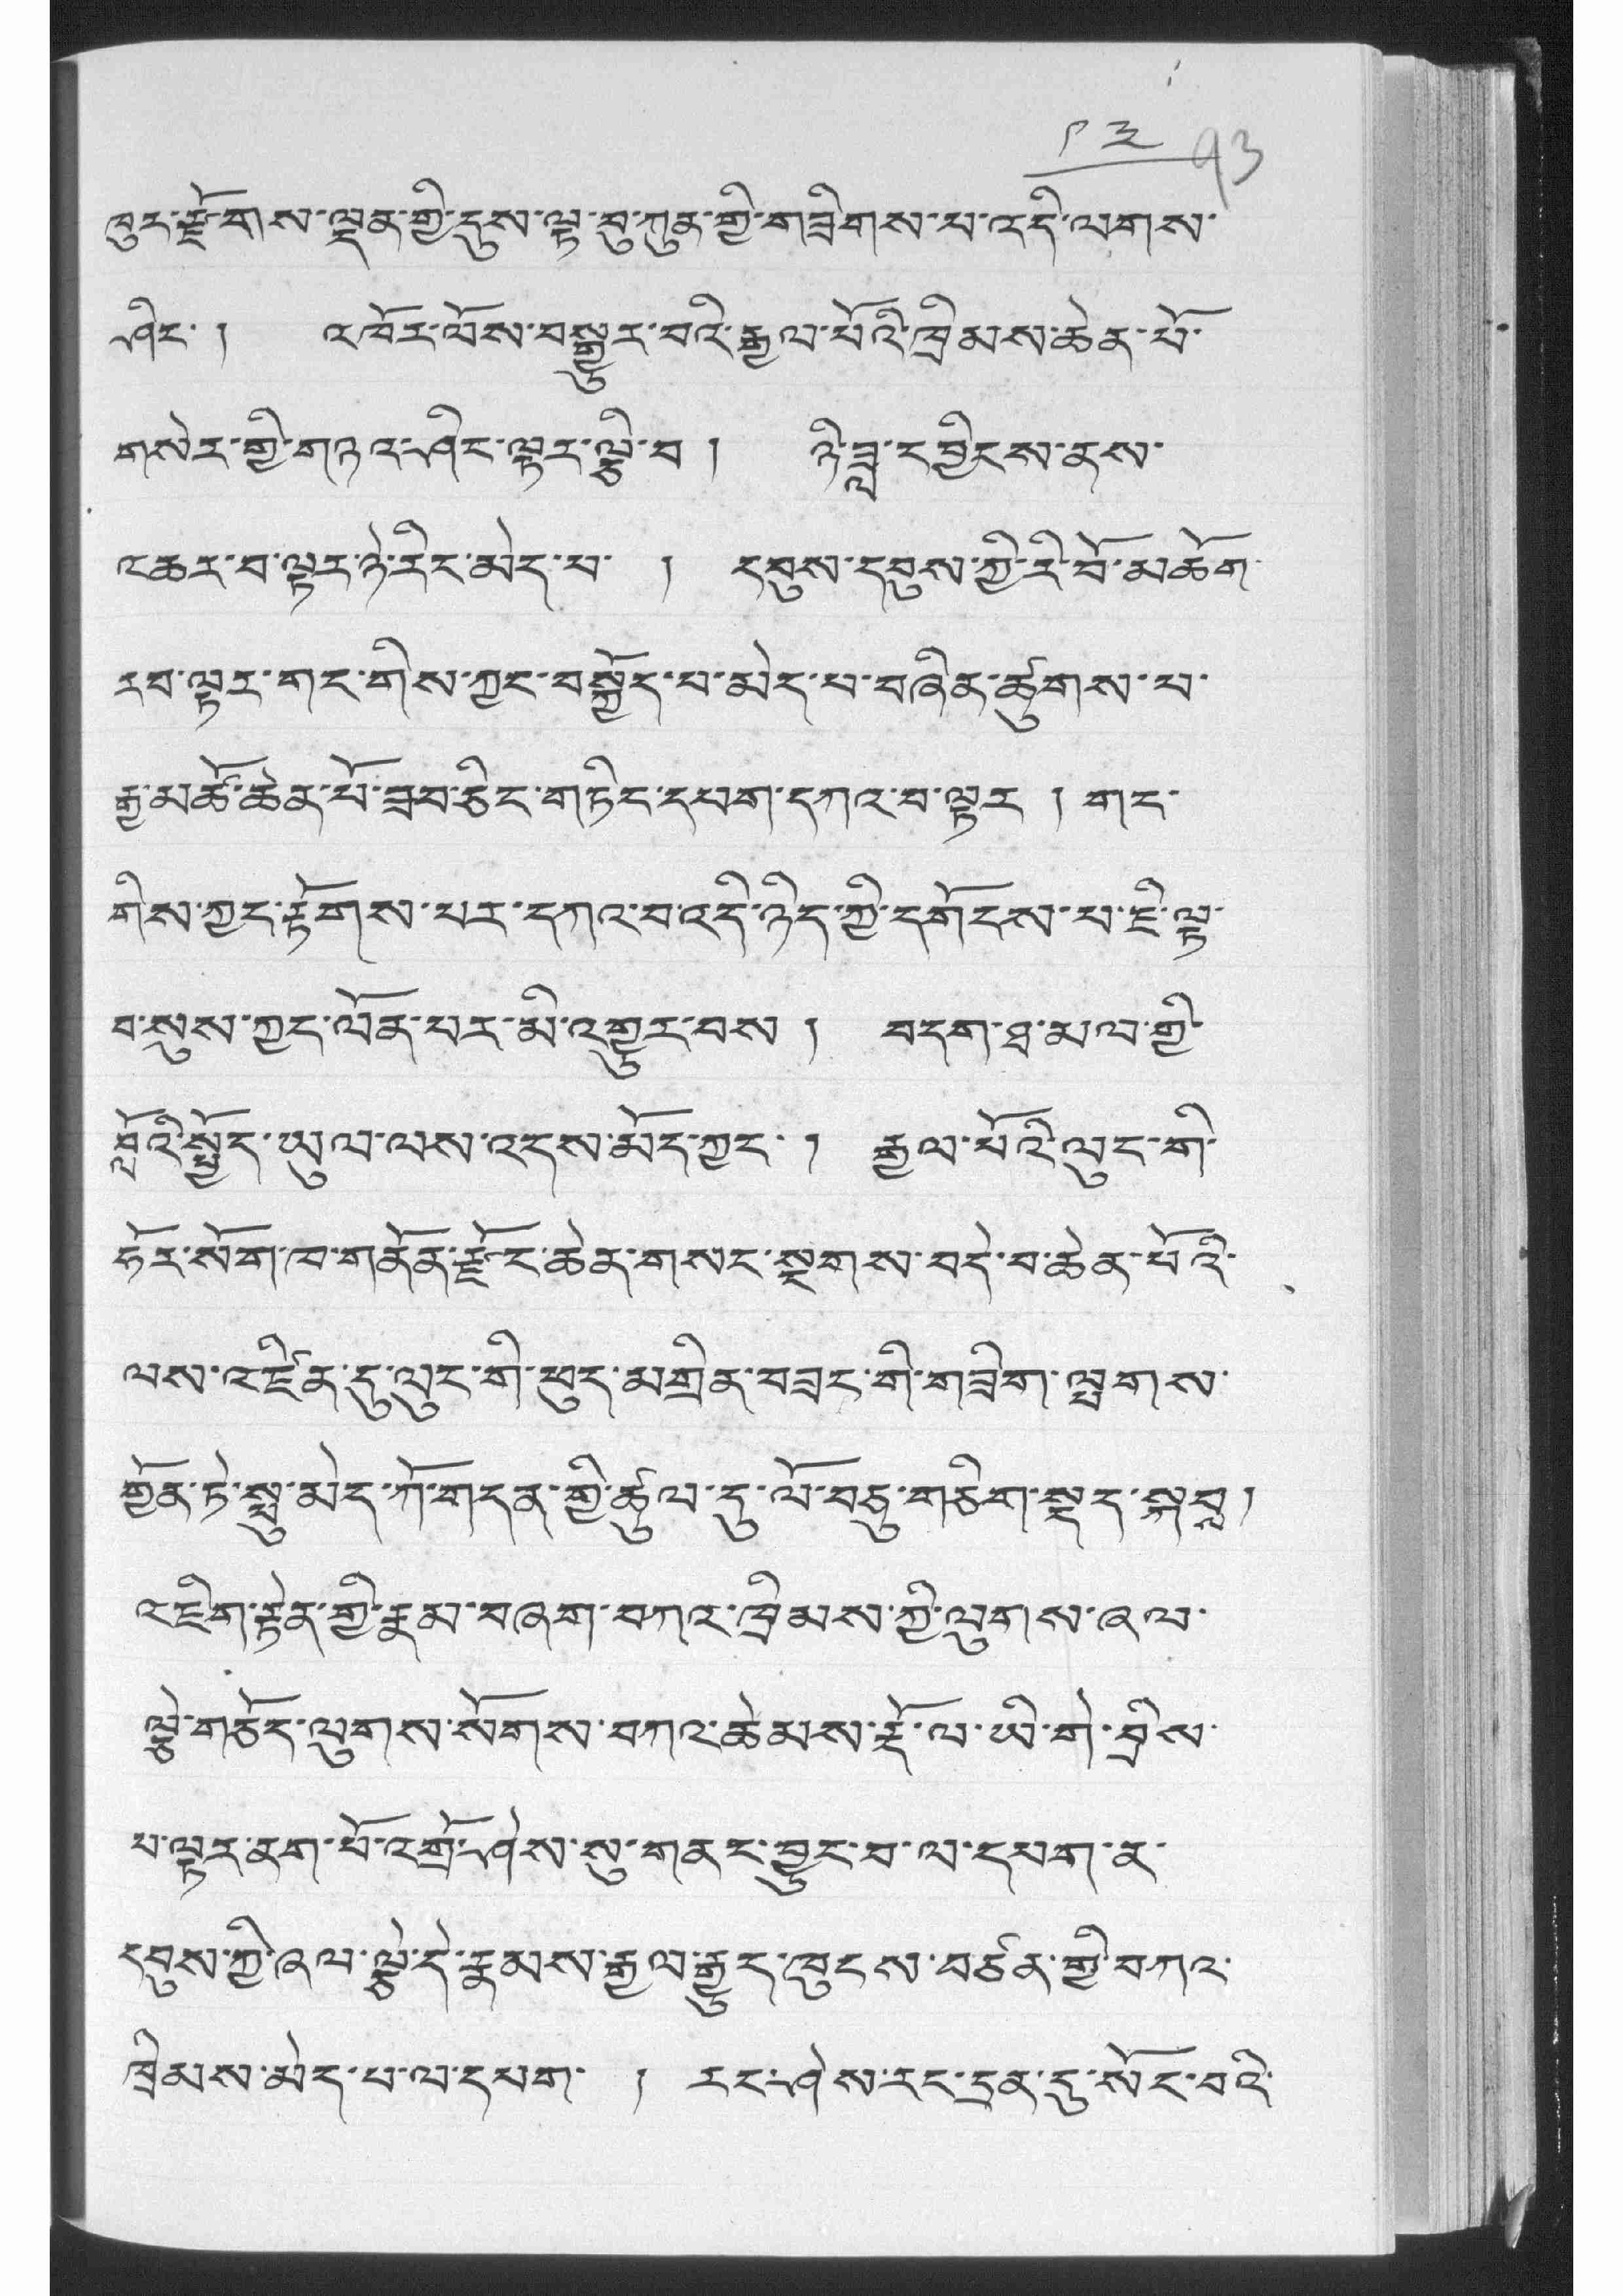 ༡༣ 93
ཁུར་རྫོགས་ལྡན་གྱི་དུས་ལྟ་བུ་ཀུན་གྱི་གཟིགས་པ་འདི་ལགས་
ཤིང་། འཁོར་ལོས་བསྒྱུར་བའི་རྒྱལ་པོའི་ཁྲིམས་ཆེན་པོ་
གསེར་གྱི་གཉའ་ཤིང་ལྟར་ལྕི་བ། ཉི་ཟླ་དབྱིངས་ནས་
འཆར་བ་ལྟར་ཉེ་རིང་མེད་པ་ ། དབུས་དབུས་ཀྱི་རི་བོ་མཆོག་
རབ་ལྟར་གང་གིས་ཀྱང་བསྐྱོད་པ་མེད་པ་བཞིན་ཚུགས་པ་
རྒྱ་མཚོ་ཆེན་པོ་ཟབ་ཅིང་གཏིང་དཔག་དཀའ་བ་ལྟར །གང་
གིས་ཀྱང་རྟོགས་པར་དཀའ་བ་འདི་ཉིད་ཀྱི་དགོངས་པ་ཇི་ལྟ་
བ་སུས་ཀྱང་ལོན་པར་མི་འགྱུར་བས། བདག་ཐ་མལ་གྱི་
བློའི་སྤྱོད་ཡུལ་ལས་འདས་མོད་ཀྱང་། རྒྱལ་པོའི་ལུང་གི་
ཧོར་སོག་ཁ་གནོན་རྫོང་ཆེན་གསང་སྔགས་བདེ་བ་ཆེན་པོའི་
ལས་འཛིན་དུ་ལུང་གི་ཕུད་མགྲིན་བཟང་གི་གཟིག་ལྤགས་
གྱོན་ཏེ་སླུ་མེད་ཀོ་གདན་གྱི་ཚུལ་དུ་ལོ་བཅུ་གཅིག་སྡད་སྐབྶ།
འཇིག་རྟེན་གྱི་རྣམ་བཞག་བཀའ་ཁྲིམས་ཀྱི་ལུགས་ཞལ་
ལྕེ་གཅོད་ལུགས་སོགས་བཀའ་ཆེམས་རྡོ་ལ་ཡི་གེ་བྲིས་
པ་ལྟར་ནག་པོ་འགྲོ་ཤེས་སུ་གནང་བྱུང་བ་ལ་དཔག་ན་
དབུས་ཀྱི་ཞལ་ལྕེ་དེ་རྣམས་རྒྱལ་རྒྱུད་ཁུངས་བཙན་གྱི་བཀའ་
ཁྲིམས་མེད་པ་ལ་དཔག་ ། རང་ཤེས་རང་དྲན་དུ་སོང་བའི་